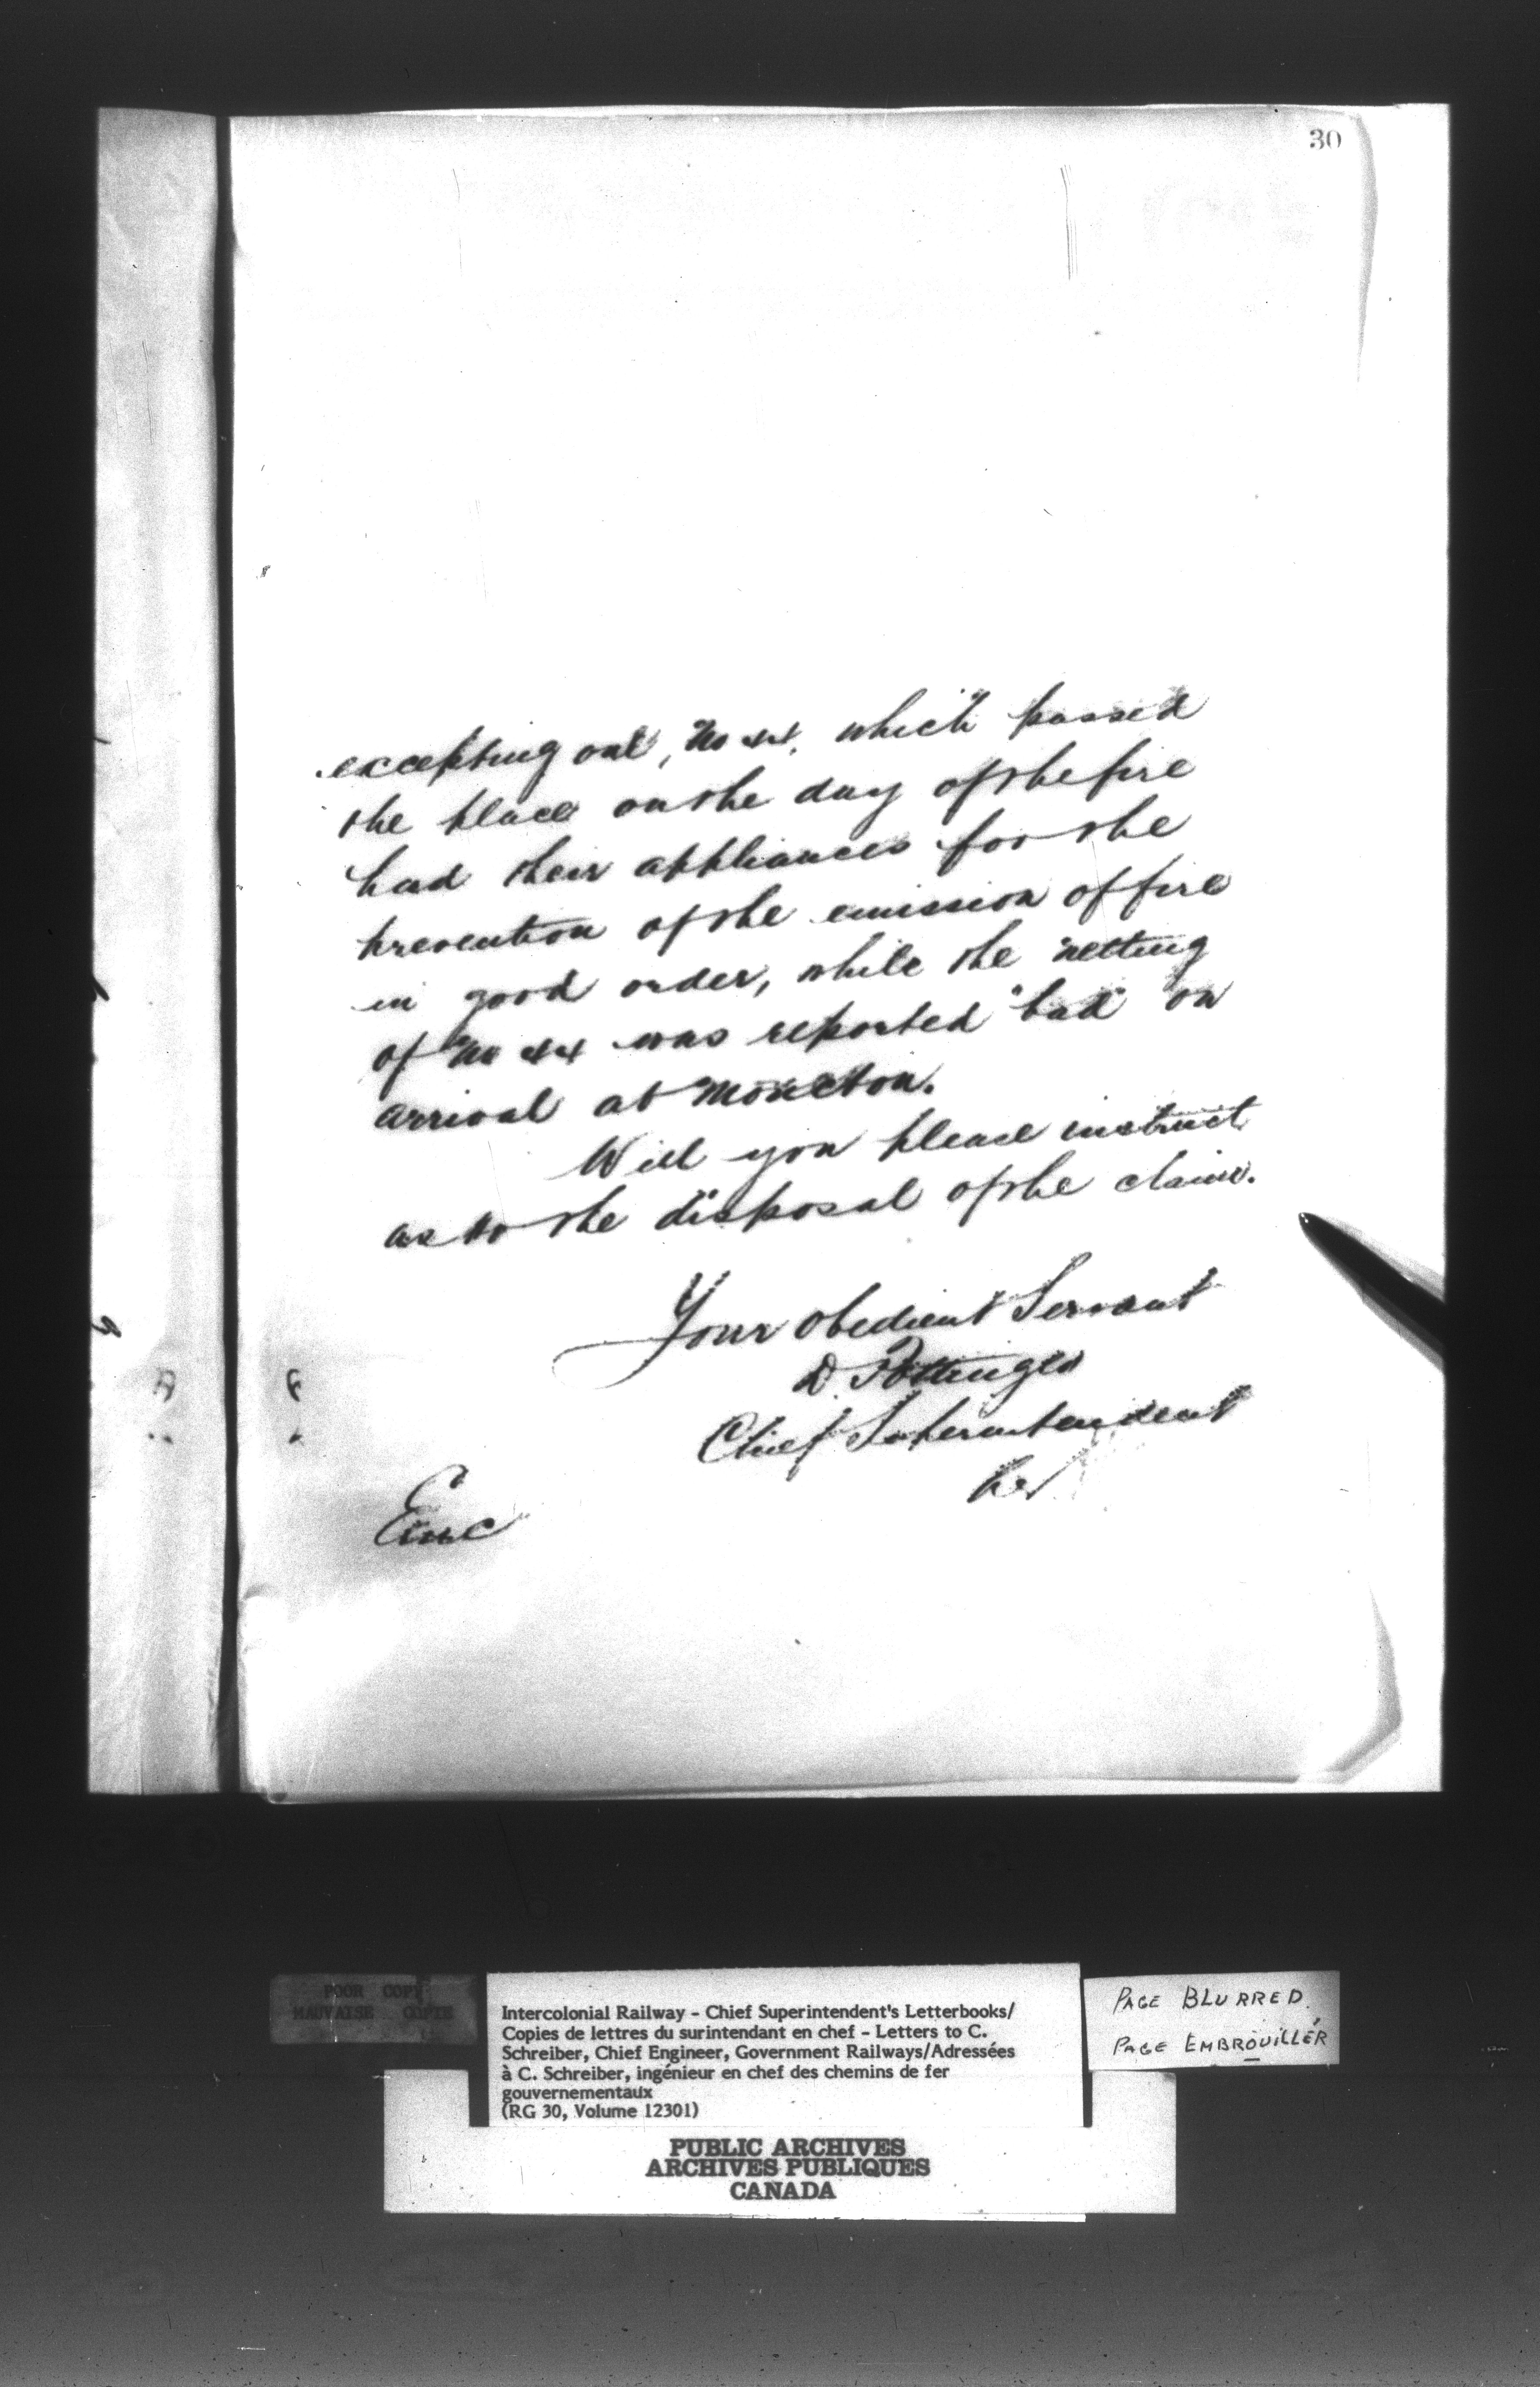 30
excepting one, No 44, which passed
the place on the day of the fire
had their appliances for the
prevention of the emission of fire
in good order, while the netting
of No 44 was reported "bad" on
arrival at Moncton.
Will you please instruct
as to the disposal of the claim.
Your obedient Servant
D. Pottinger
Chief Superintendent
Enc
POOR COPY
MAUVAISE COPIE
Intercolonial Railway - Chief Superintendent's Letterbooks/
Copies de lettres du surintendant en chef - Letters to C.
Schreiber, Chief Engineer, Government Railways/Adressées
à C. Schreiber, ingénieur en chef des chemins de fer
gouvernementaux
(RG 30, Volume 12301)
PAGE BLURRED
PAGE EMBROUILLÉR
PUBLIC ARCHIVES
ARCHIVES PUBLIQUES
CANADA